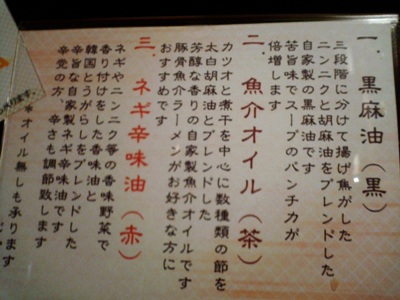 一．黒麻油（黒）
三段階に分けて揚げ焦がした
ニンニクと胡麻油をブレンドした
自家製の黒麻油です
苦旨味でスープのパンチ力が
倍増します
二．魚介オイル（茶）
カツオと煮干を中心に数種類の節を
太白胡麻油とブレンドした
芳醇な香りの自家製魚介オイルです
豚骨魚介ラーメンがお好きな方に
おすすめです
三．ネギ辛味油（赤）
ネギやニンニク等の香味野菜で
香り付けをした香味油と
韓国とうがらしをブレンドした
辛旨な自家製ネギ辛味油です
辛党の方、辛さも調節致します
＊オイル無しも承ります
ります。